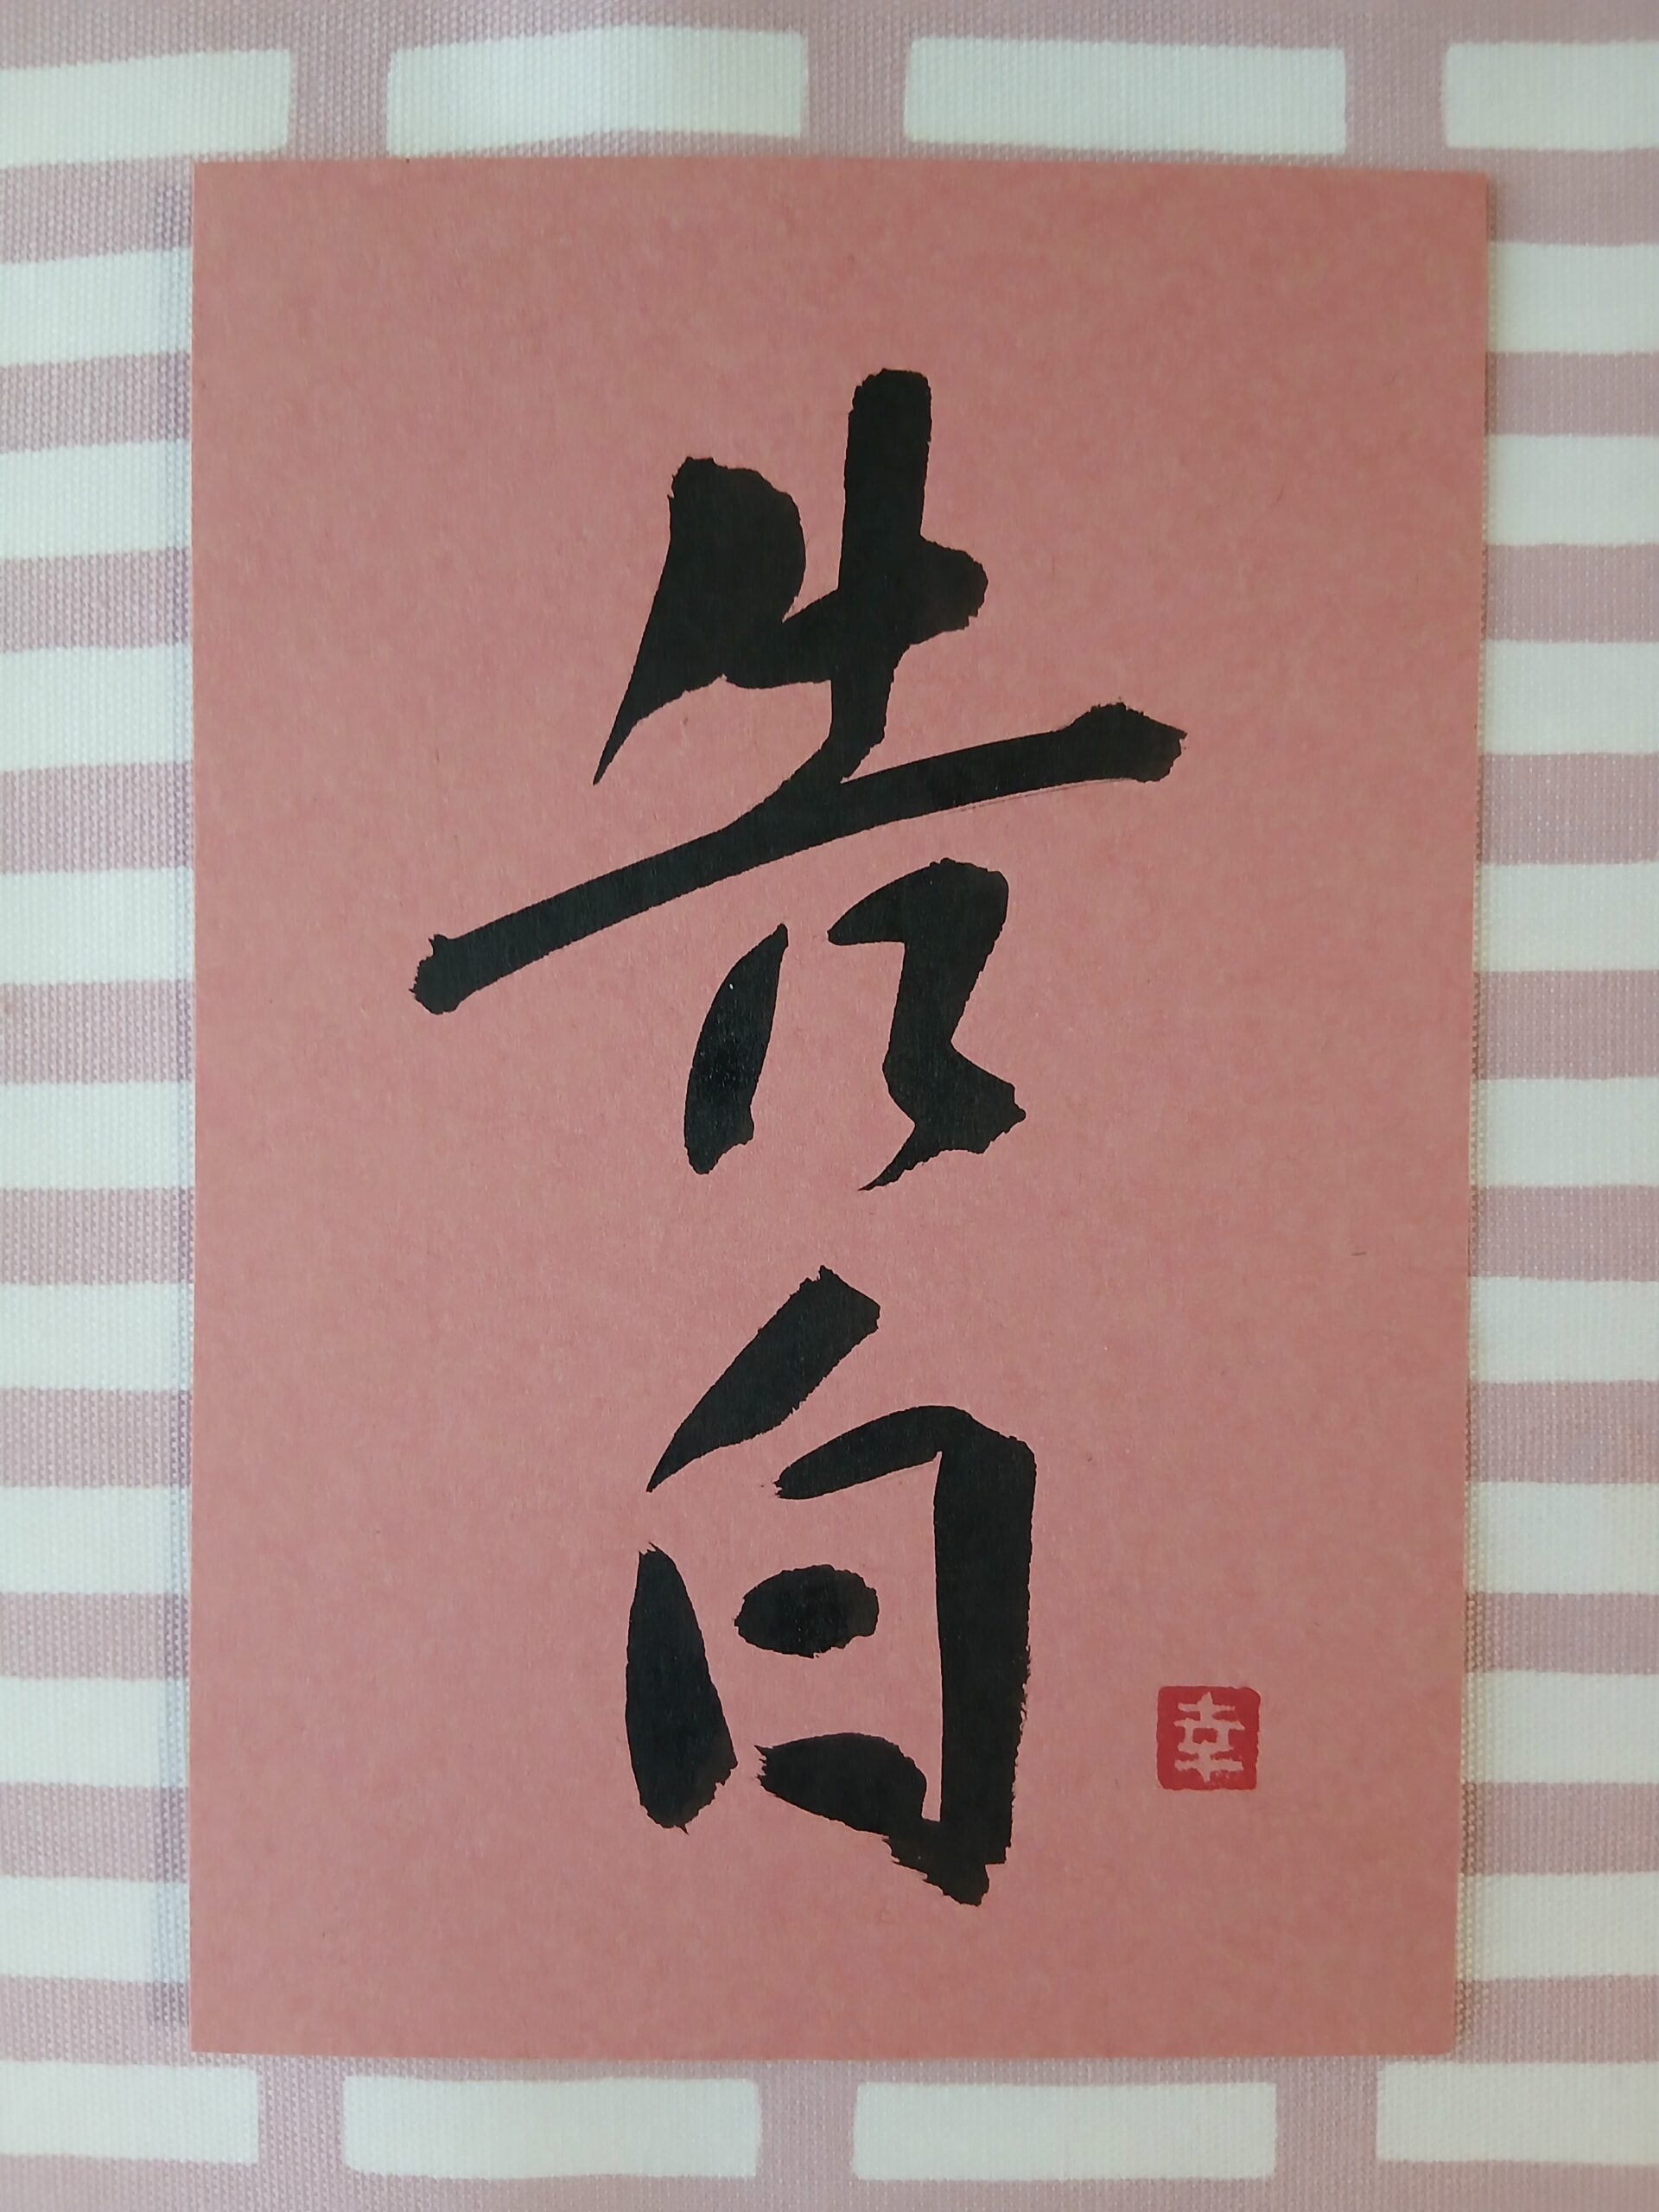 告白
幸